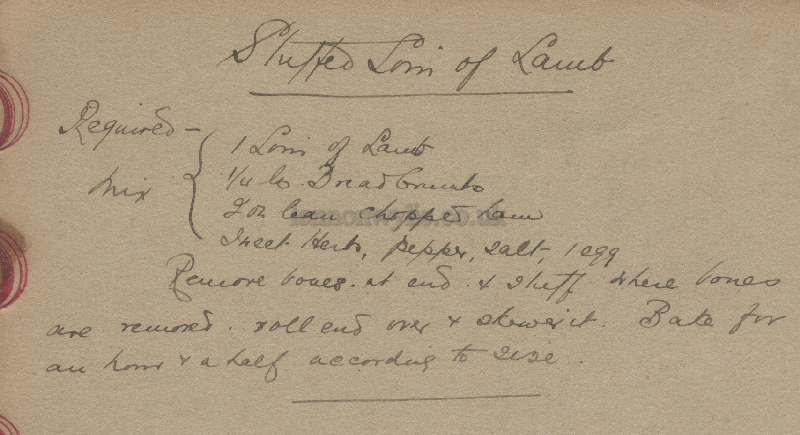 Stuffed Loin of Lamb
Required -
1 Loin of Lamb
Mix
1/4 lb Breadcrumbs
2 oz lean chopped ham
Sweet Herbs, pepper, salt, 1 egg
Remove bones. at end & stuff where bones
are removed. roll end over & skewer it. Bake for
an hour & a half according to size.